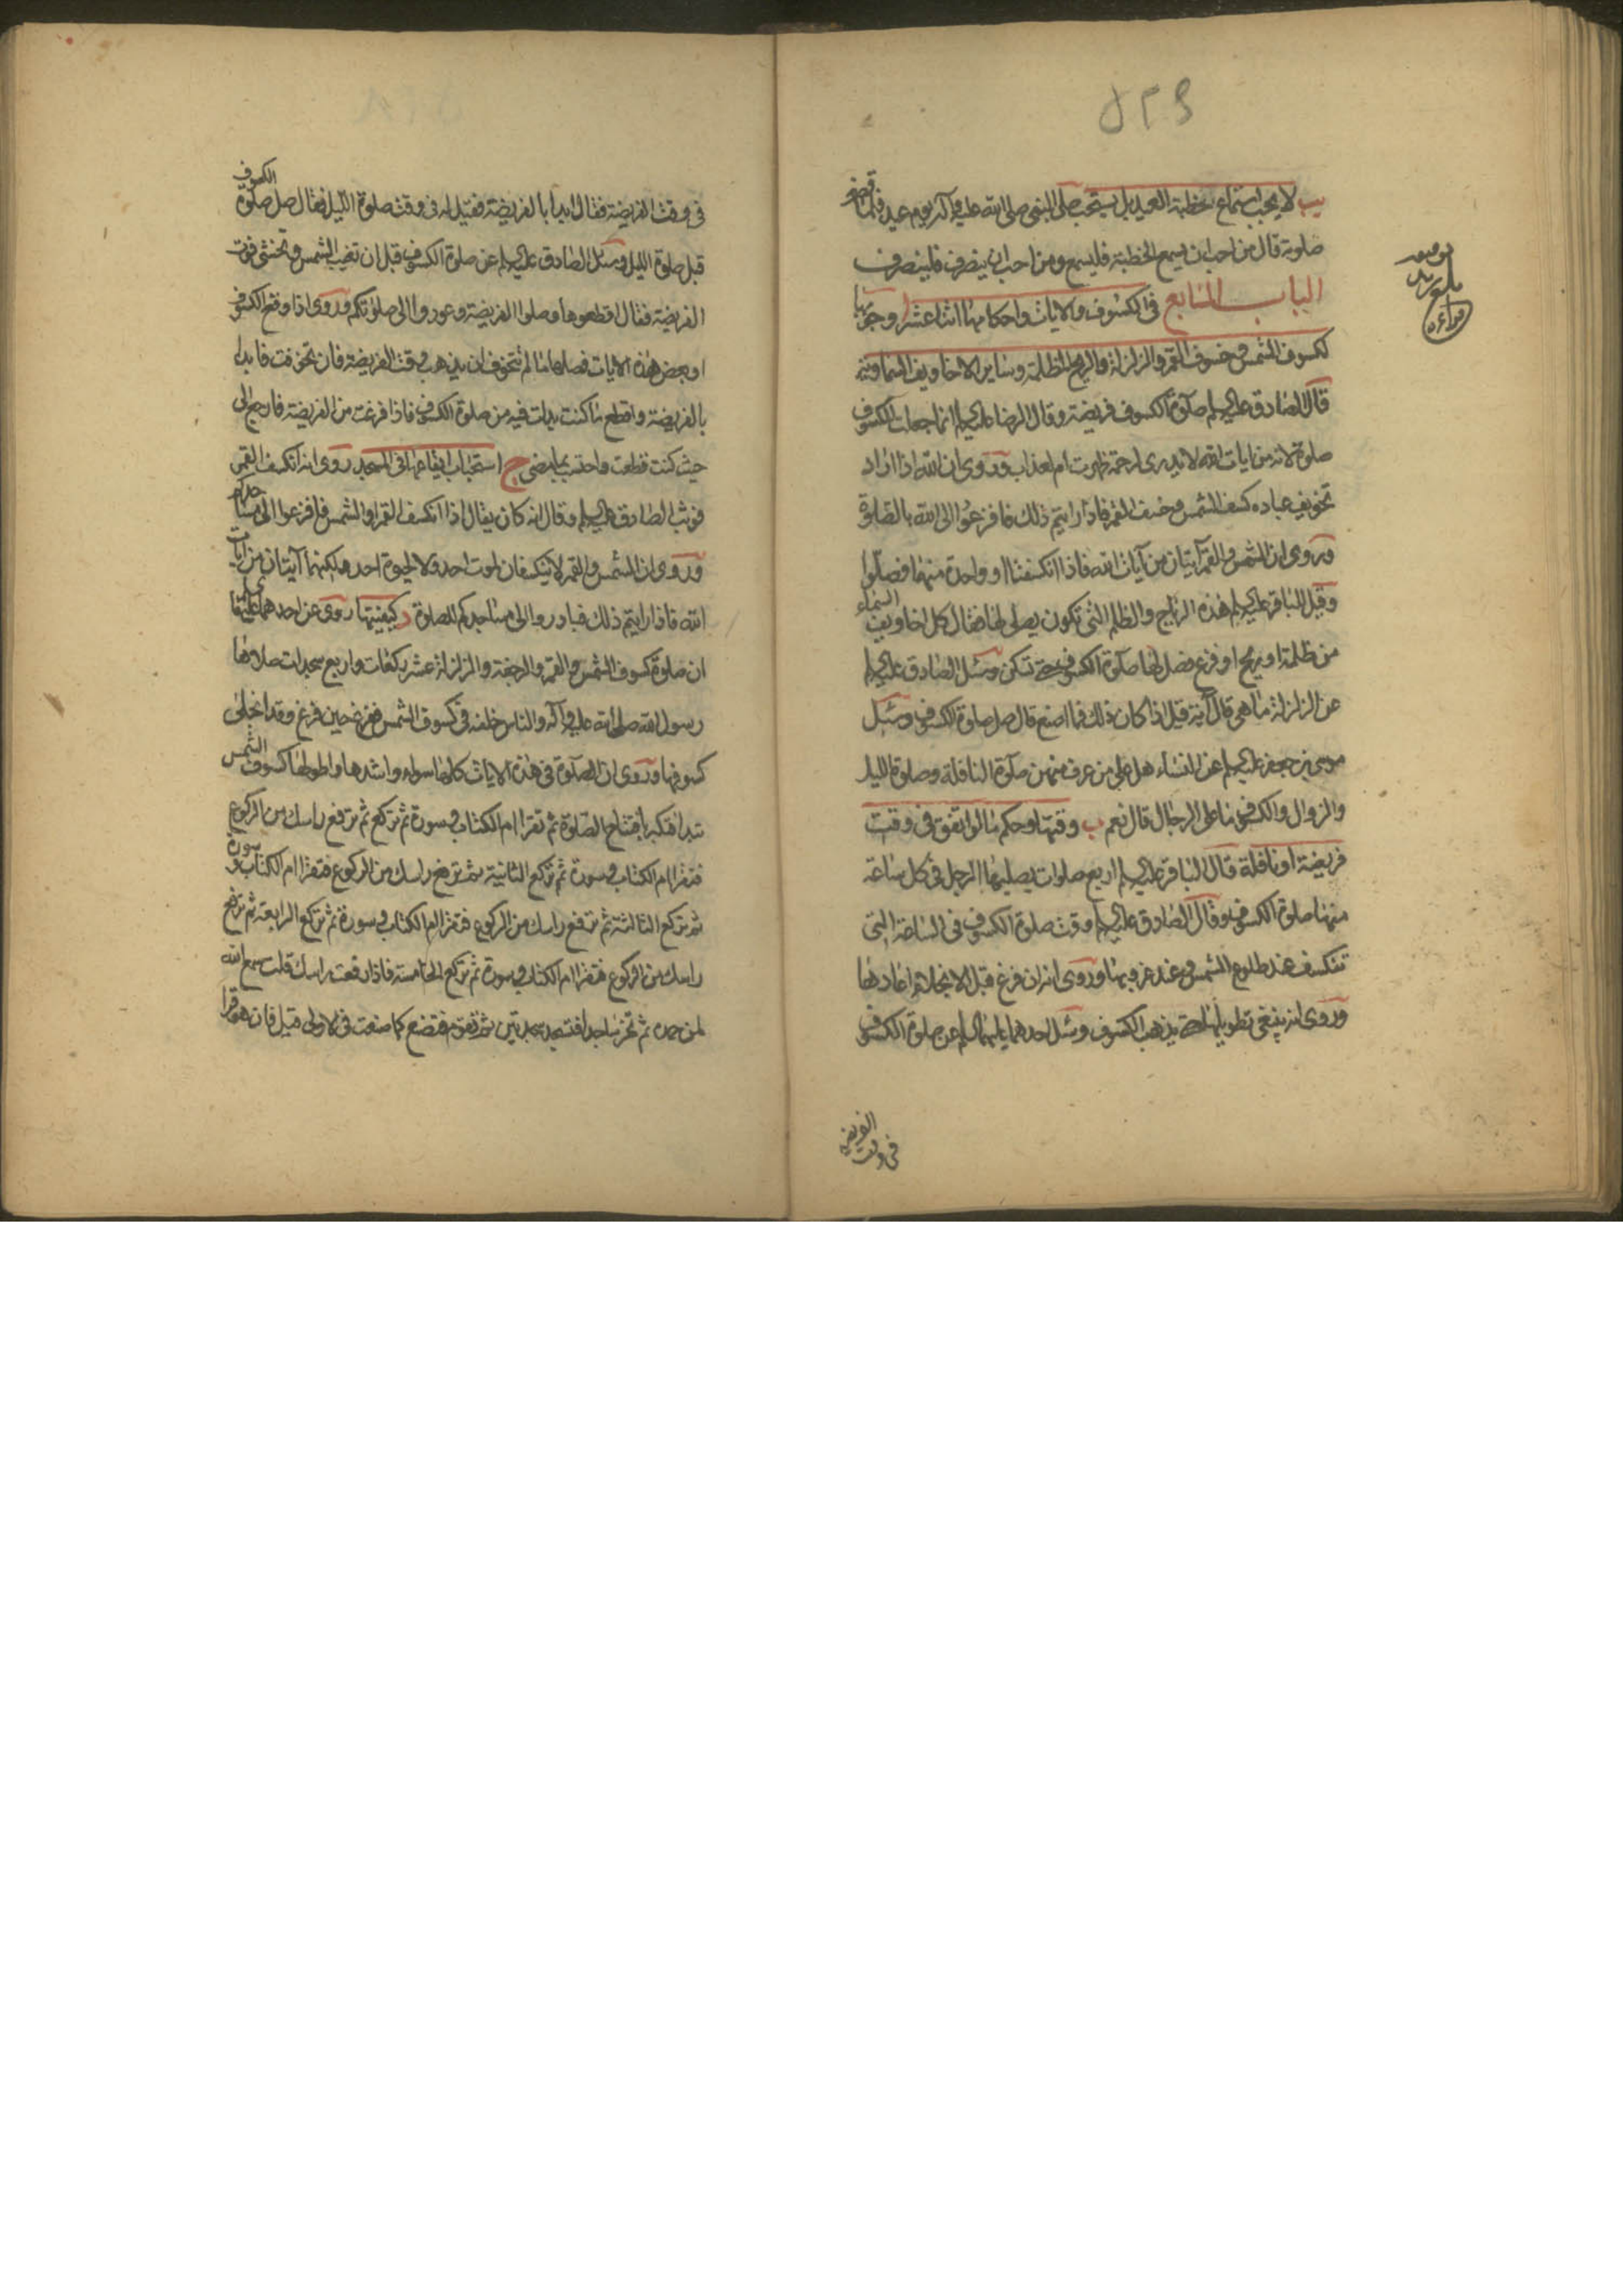 يب لا يجب استماع خطبة العيد بل يستحب صلى النبي صلى الله عليه وآله يوم عيد فلما قضى
صلوته قال من احب ان يسمع الخطبة فليسمع ومن احب ان ينصرف فلينصرف
الباب السابع في الكسوف والايات واحكامها اثنا عشر ا وجوبها
لكسوف الشمس وخسوف القمر والزلزلة والريح المظلمة وساير الاخاويف السماوية
قال الصادق عليه السلم صلوة الكسوف فريضة وقال الرضا عليه السلم انما جعلت للكسوف
صلوة لانه من ايات الله لا يدرى لرحمة ظهرت ام لعذاب وروى ان الله اذا اراد
تخويف عباده كسف الشمس وخسف القمر فاذا رايتم ذلك فافزعوا الى الله بالصلوة
وروى ان الشمس والقمر آيتان من آيات الله فاذا انكسفتا او واحدة منهما فصلّوا
وقيل للباقر عليه السلم هذه الرياح والظلم التى تكون يصلى لها فقال كل اخاويف السماء
من ظلمة او ريح او فزع فصل لها صلوة الكسوف حتى تسكن وسئل الصادق عليه السلم
عن الزلزلة ما هى قال آية قيل اذا كان ذلك فما اصنع قال صل صلوة الكسوف وسئل
موسى بن جعفر عليه السلم عن النساء هل على من عرف منهن صلوة النافلة وصلوة الليل
والزوال والكسوف ما على الرجال قال نعم ب وقتها وحكم ما لو اتفق فى وقت
فريضة او نافلة قال الباقر عليه السلم اربع صلوات يصليها الرجل فى كل ساعة
منها صلوة الكسوف وقال الصادق عليه السلم وقت صلوة الكسوف فى الساعة التى
تنكسف عند طلوع الشمس وعند غروبها وروى انه ان فرغ قبل الانجلاء اعادها
وروى انه ينبغى تطويلها حتى يذهب الكسوف وسئل احدهما عليهما السلم عن صلوة الكسوف
فى وقت الفريضة
فى وقت الفريضة فقال ابدأ بالفريضة فقيل له فى وقت صلوة الليل فقال صل صلوة الكسوف
قبل صلوة الليل وسئل الصادق عليه السلم عن صلوة الكسوف قبل ان تغيب الشمس وتخشى فوت
الفريضة فقال اقطعوها وصلوا الفريضة وعودوا الى صلوتكم وروى اذا وقع الكسوف
او بعض هذه الايات فصلها ما لم تتخوف ان يذهب وقت الفريضة فان تخوفت فابدا
بالفريضة واقطع ما كنت بدات فيه من صلوة الكسوف فاذا فرغت من الفريضة فارجع الى
حيث كنت قطعت واحتسب بما مضى ج استحباب ايقاعها فى المسجد روى انه انكسف القمر
فوثب الصادق عليه السلم وقال انه كان يقال اذا انكسف القمر او الشمس فافزعوا الى مساجدكم
وروى ان الشمس والقمر لا ينكسفان لموت احد ولا لحيوة احد ولكنهما آيتان من ايات
الله فاذا رايتم ذلك فبادروا الى مساجدكم للصلوة د كيفيتها روى عن احدهما عليهما
ان صلوة كسوف الشمس والقمر والرجفة والزلزلة عشر ركعات واربع سجدات صلاها
رسول الله صلى الله عليه وآله والناس خلفه فى كسوف الشمس ففرغ حين فرغ وقد انجلى
كسوفها وروى ان الصلوة فى هذه الايات كلها سواء واشدها واطولها كسوف الشمس
تبدا فتكبر بافتتاح الصلوة ثم تقرا ام الكتاب وسورة ثم تركع ثم ترفع راسك من الركوع
فتقرا ام الكتاب وسورة ثم تركع الثانية ثم ترفع راسك من الركوع فتقرا ام الكتاب وسورة
ثم تركع الثالثة ثم ترفع راسك من الركوع فتقرا ام الكتاب وسورة ثم تركع الرابعة ثم ترفع
راسك من الركوع فتقرا ام الكتاب وسورة ثم تركع الخامسة فاذا رفعت راسك قلت سمع الله
لمن حمده ثم تخر ساجدا فتسجد سجدتين ثم تقوم فتصنع كما صنعت فى الاولى قيل فان هو قرا